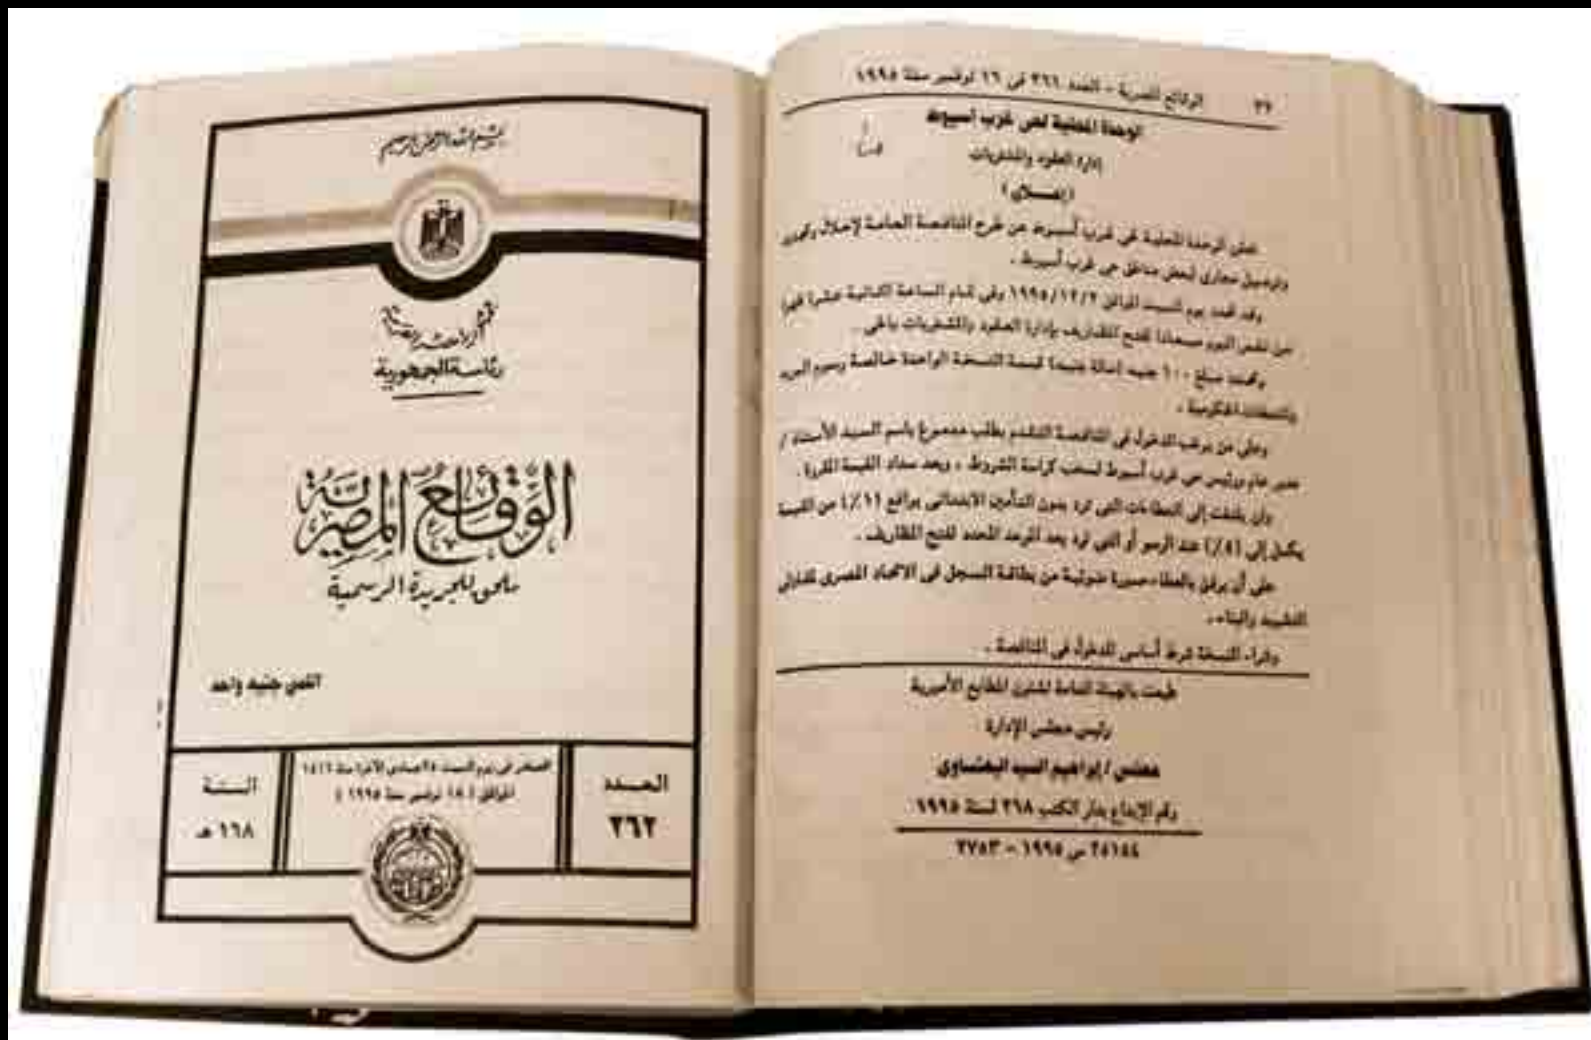 ٣٢ الوقائع المصرية - العدد ٢٦١ فى ١٦ نوفمبر سنة ١٩٩٥
الوحدة المحلية لحى غرب أسيوط
إدارة العقود والمشتريات
(إعلان)
تعلن الوحدة المحلية لحى غرب أسيوط عن طرح المناقصة العامة لإحلال وتجديد
وتوصيل مجارى لبعض مناطق حى غرب أسيوط .
وقد تحدد يوم السبت الموافق ١٩٩٥/١٢/٢ وفى تمام الساعة الثانية عشرة ظهرا
من نفس اليوم ميعادا لفتح المظاريف بإدارة العقود والمشتريات بالحى .
وتحدد مبلغ ١٠٠ جنيه (مائة جنيه) قيمة النسخة الواحدة خالصة رسوم البريد
والدمغات الحكومية .
وعلى من يرغب الدخول فى المناقصة التقدم بطلب مدموغ باسم السيد الأستاذ /
مدير عام ورئيس حى غرب أسيوط لسحب كراسة الشروط ، وبعد سداد القيمة المقررة .
ولن يلتفت إلى العطاءات التى ترد بدون التأمين الابتدائى بواقع (١٪) من القيمة
يكمل إلى (٥٪) عند الرسو أو التى ترد بعد الموعد المحدد لفتح المظاريف .
على أن يرفق بالعطاء صورة ضوئية من بطاقة السجل فى الاتحاد المصرى لمقاولى
التشييد والبناء .
وشراء النسخة شرط أساسى للدخول فى المناقصة .
طبعت بالهيئة العامة لشئون المطابع الأميرية
رئيس مجلس الإدارة
مهندس / إبراهيم السيد البهنساوى
رقم الإيداع بدار الكتب ٢٦٨ لسنة ١٩٩٥
٢٥١٥٤ س ١٩٩٥ - ٢٧٥٣
بسم الله الرحمن الرحيم
جمهورية مصر العربية
رئاسة الجمهورية
الوقائع المصرية
ملحق للجريدة الرسمية
الثمن جنيه واحد
العدد
٢٦٢
الصادر فى يوم السبت ٢٥ جمادى الآخرة سنة ١٤١٦
الموافق ( ١٨ نوفمبر سنة ١٩٩٥ )
السنة
١٦٨ هـ